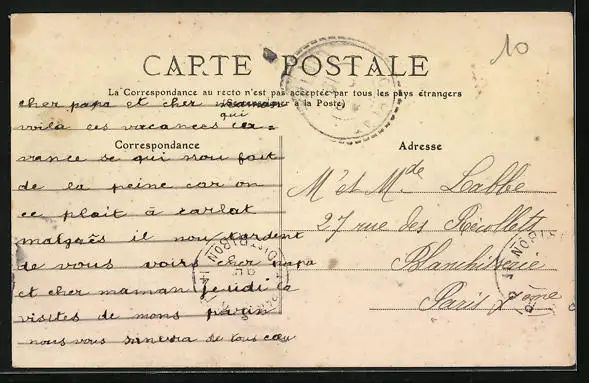 10
CARTE POSTALE
La Correspondance au recto n'est pas acceptée par tous les pays étrangers
(Se renseigner à la Poste)
cher papa et cher maman
qui
voila ces vacances
Correspondance
vance se qui nou fait
de la peine car on
ce plait à carlat
malgrès il nou tardent
de vous voire cher papa
et cher maman jeudi
visites de mons
nous vous de tous cœu
Adresse
Mr et Mde Labbe
27 rue des Récollets
Blanchisserie
Paris ème
DISTRIBUTION